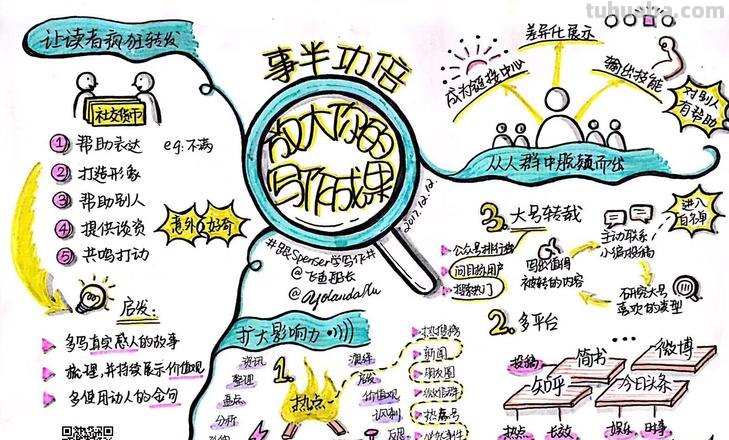 tuhuaba.com
让读者疯狂转发
社交货币
① 帮助表达 eg:不满
② 打造形象
③ 帮助别人
④ 提供谈资
⑤ 共鸣打动
意外 好奇
启发:
多写真实感人的故事
梳理,并持续展示价值观
多使用动人的金句
事半功倍
放大你的
写作成果
2017.12.12.
#跟Spenser学写作#
@飞鱼船长
@YolandaXu
差异化展示
成为链接中心
输出技能
对别人
有帮助
从人群中脱颖而出
3.大号转载
公众号排行榜
问目标用户
搜索热门
写出值得
被转的内容
主动联系
小编投稿
进入
白名单
研究大号
喜欢的类型
2.多平台
投稿
简书
微博
知乎
今日头条
热点
长效
娱乐
时事
扩大影响力
1.
热点
资讯
整理
盘点
分析
演绎
启发
价值观
识别
热搜榜
新闻
朋友圈
微信群